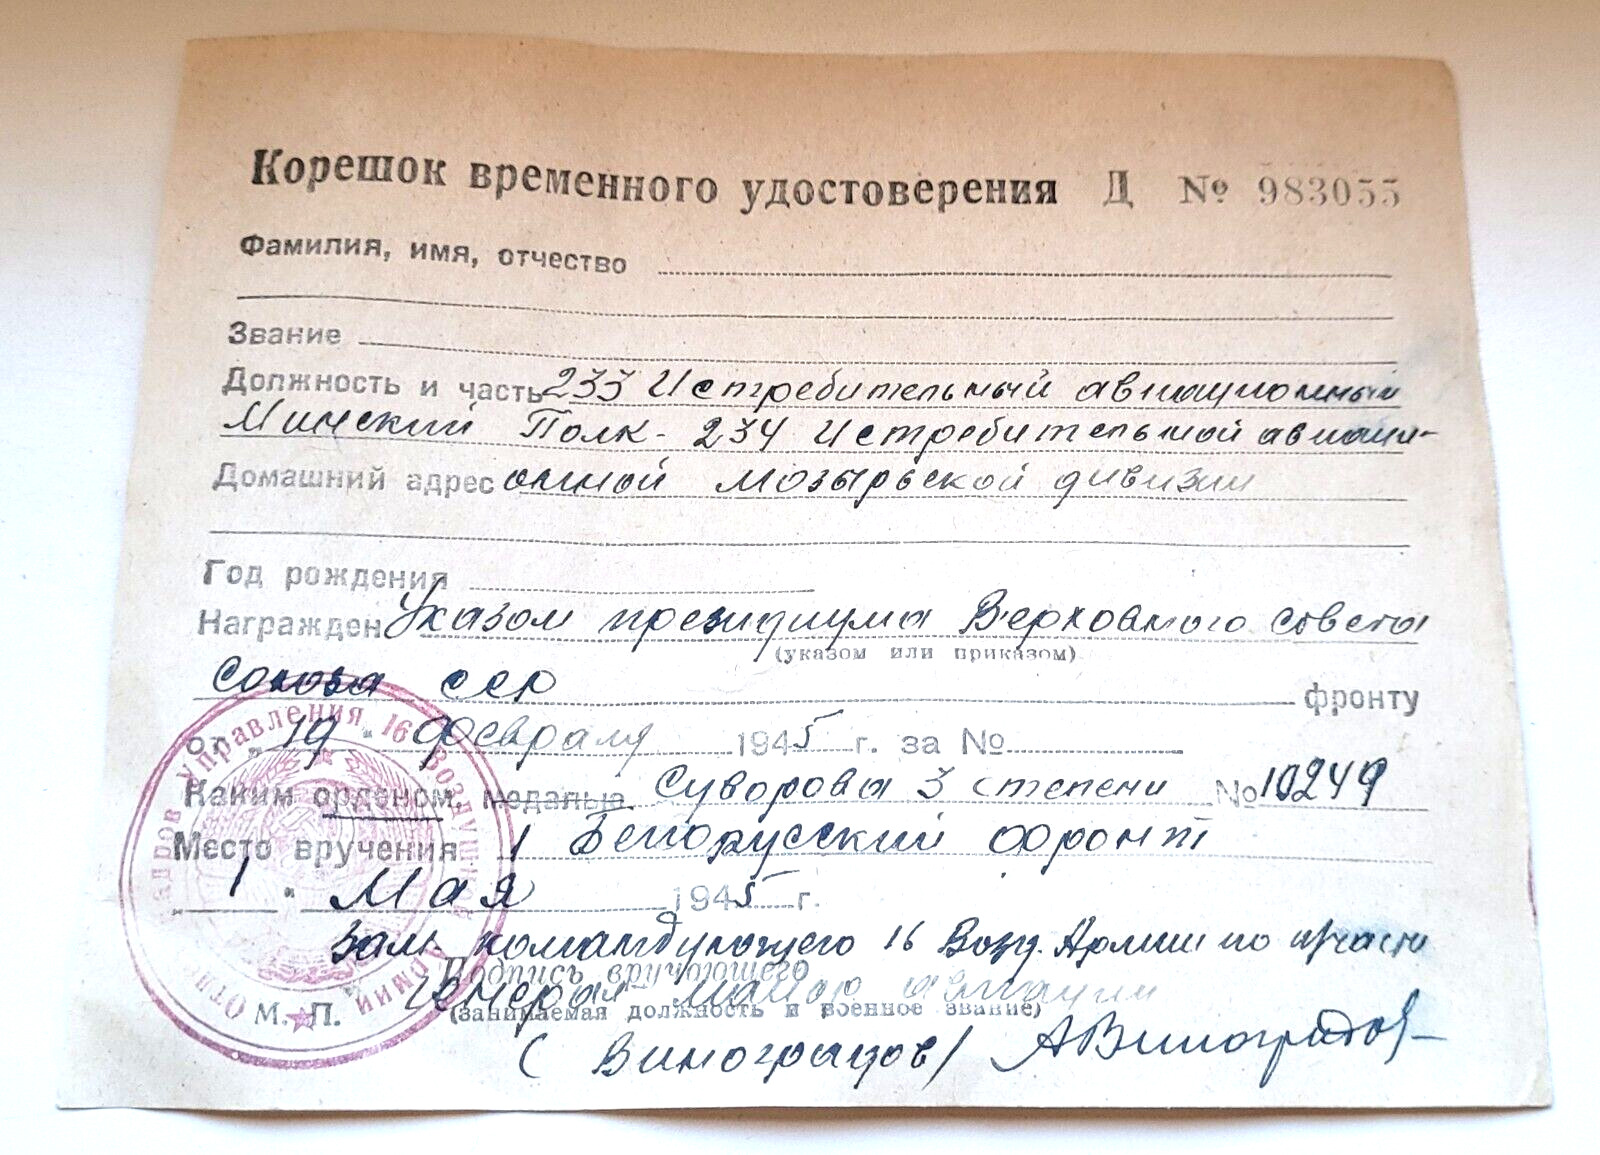 Корешок временного удостоверения Д № 983055
Фамилия, имя, отчество
Звание
Должность и часть 233 Истребительный авиационный
Минский Полк - 234 Истребительной авиаци-
Домашний адрес онной Мозырьской дивизии
Год рождения
Награжден Указом президиума Верховного совета
(указом или приказом)
союза сср фронту
от „19" февраля 1945 г. за №
Каким орденом, медалью Суворова 3 степени № 10249
Место вручения 1 Белорусский фронт
„1" Мая 1945 г.
Зам. командующего 16 Возд. Армии по
Подпись вручающего
Генерал майор авиации
М. П. (занимаемая должность и военное звание)
(Виноградов) АВиноградов
Отдел кадров Управления 16 Воздушной Армии